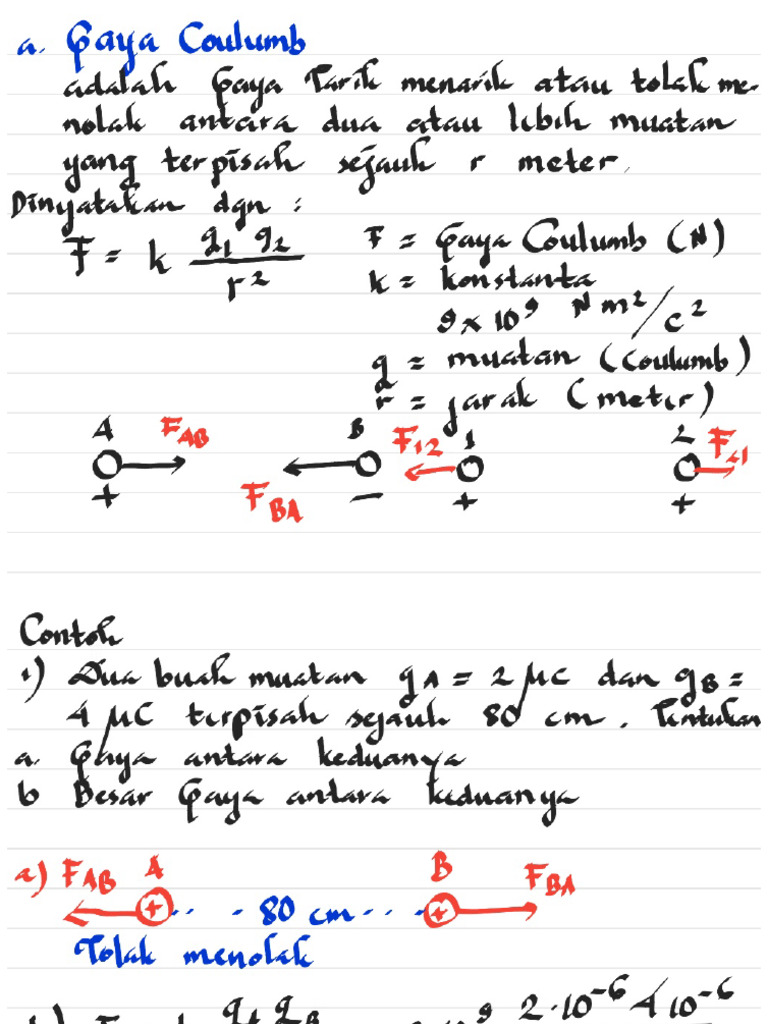 a. Gaya Coulumb
adalah Gaya Tarik menarik atau tolak me-
nolak antara dua atau lebih muatan
yang terpisah sejauh r meter.
Dinyatakan dgn :
F = k q1 q2 / r²
F = Gaya Coulumb (N)
k = konstanta
9 x 10⁹ N m²/c²
q = muatan (Coulumb)
r = jarak (meter)
A FAB B F12 1 2 F21
FBA
+ − + +
Contoh
1) Dua buah muatan qA = 2 μC dan qB =
4 μC terpisah sejauh 80 cm. Tentukan
a. Gaya antara keduanya
b Besar Gaya antara keduanya
a) FAB A B FBA
+ 80 cm +
Tolak menolak
2·10⁻⁶ 4 10⁻⁶